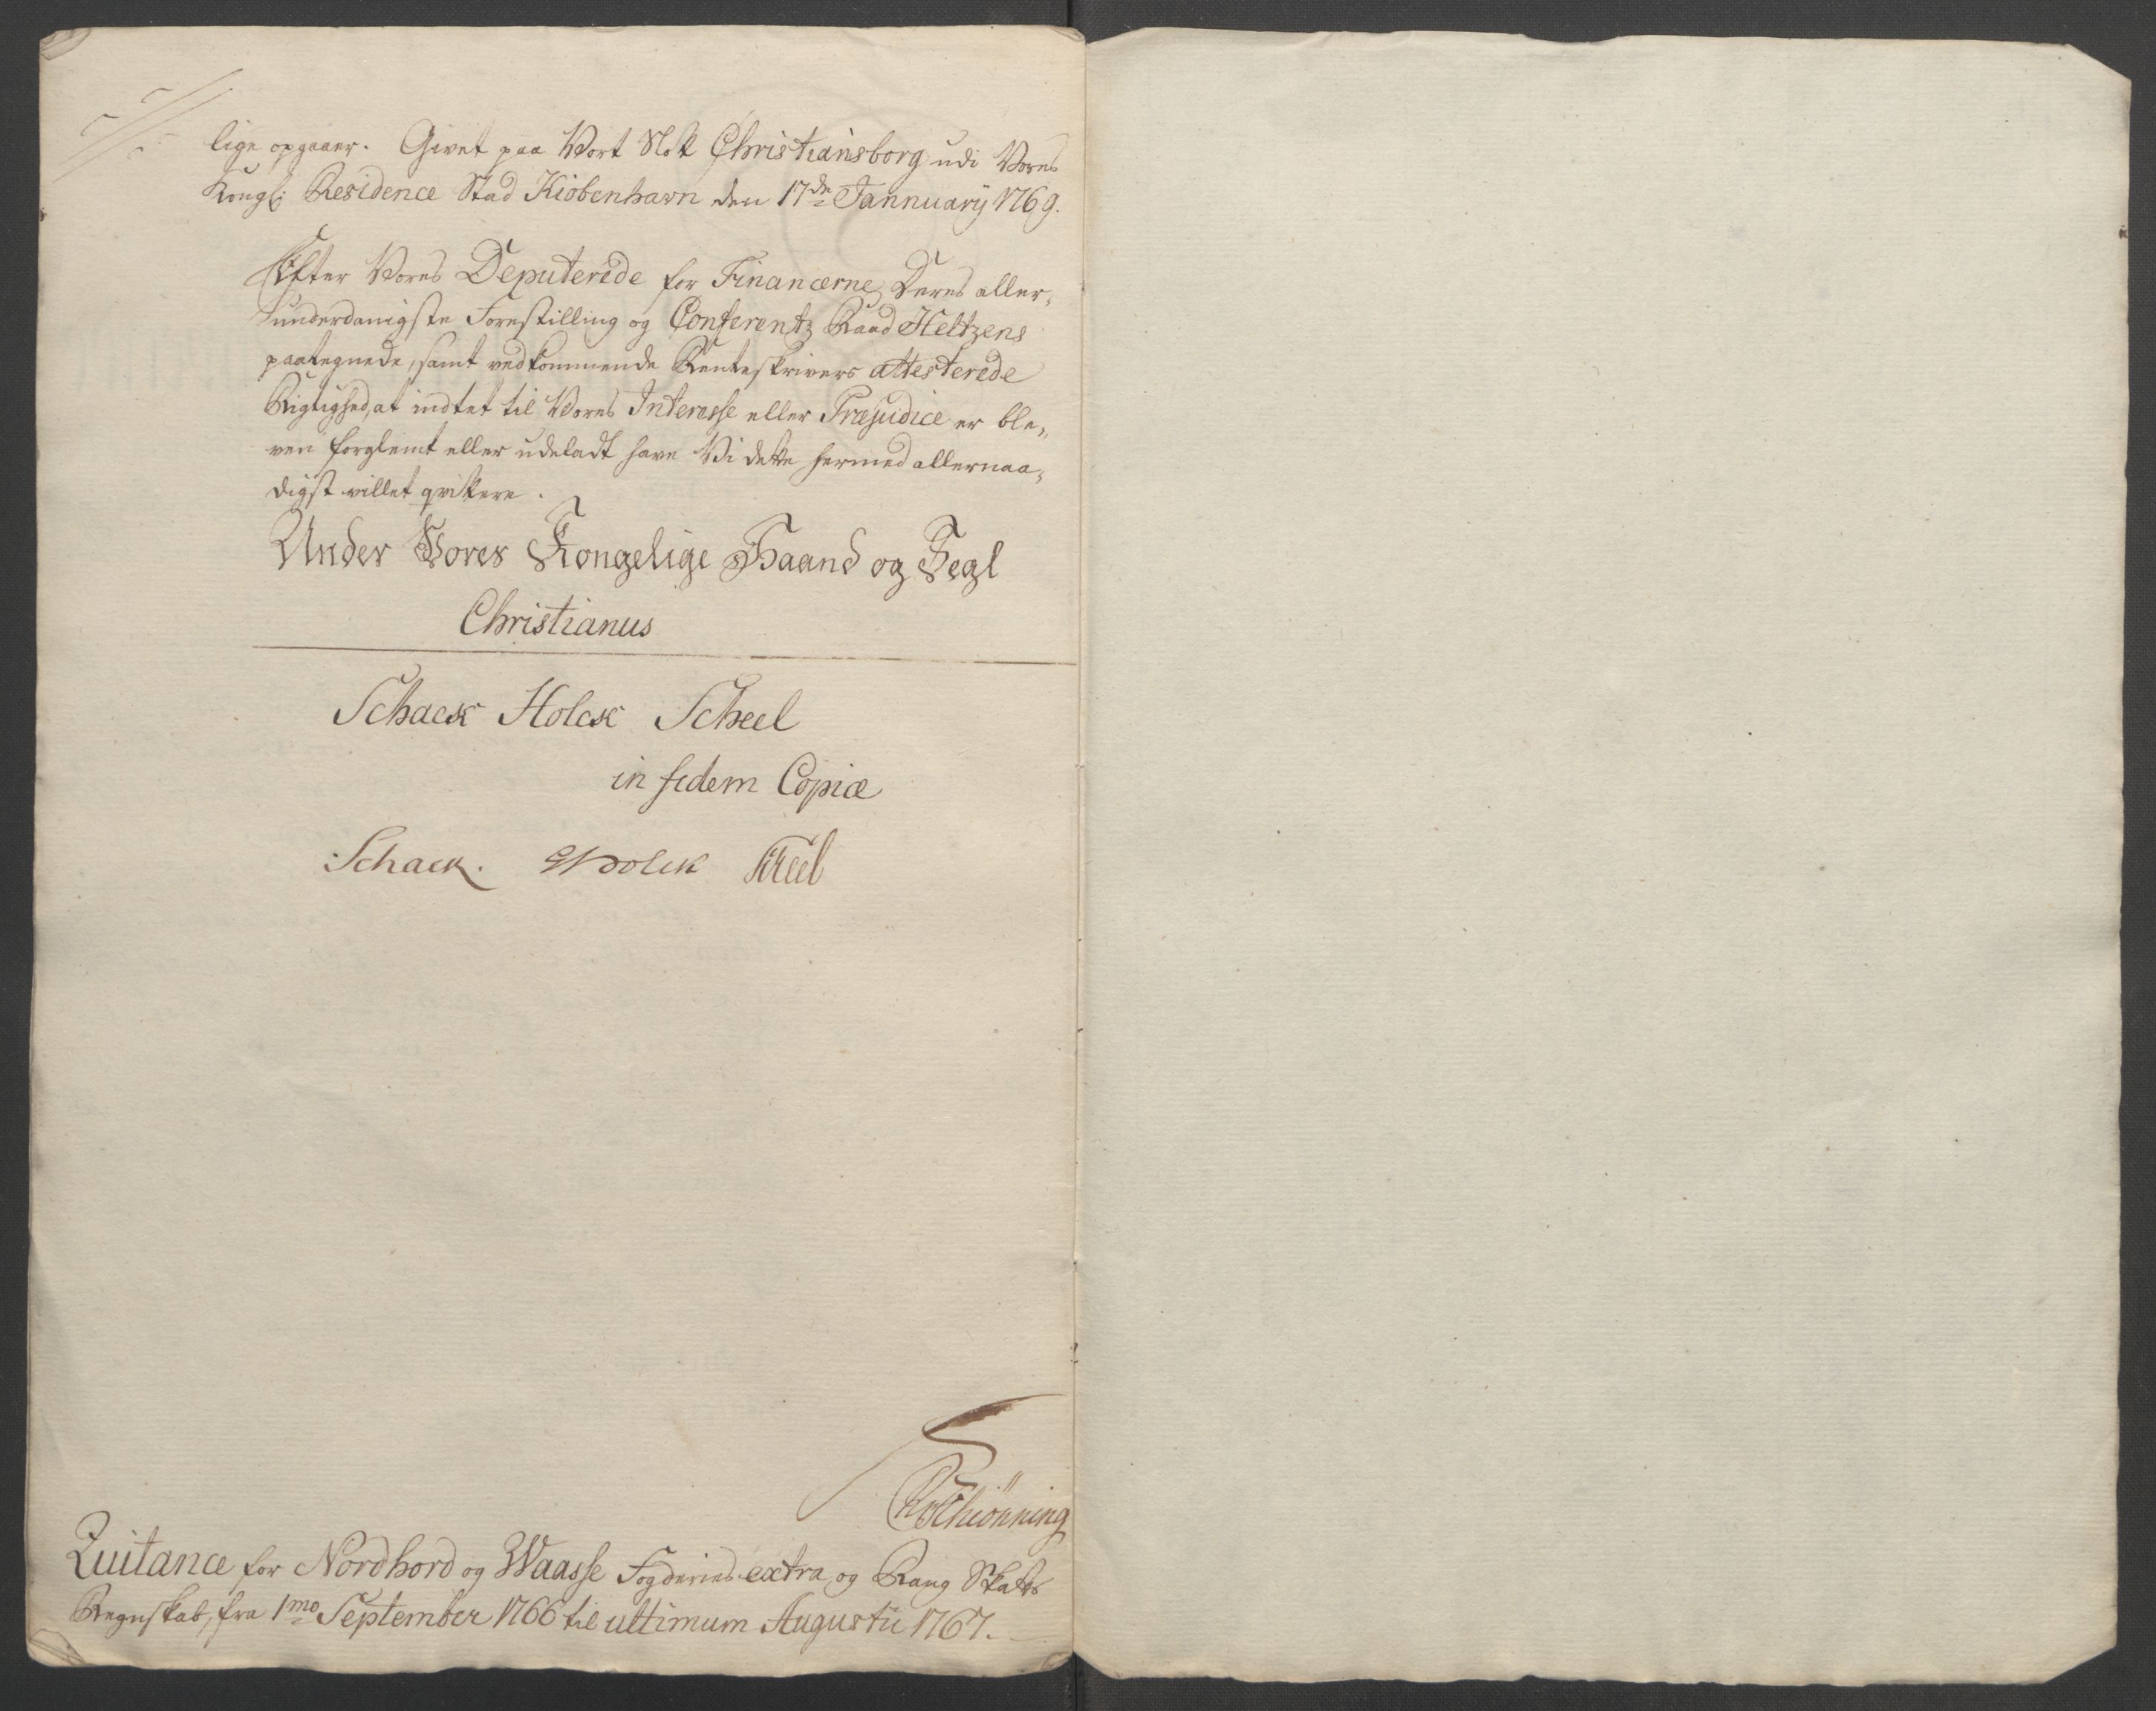 lige opgaaer. Givet paa Vort Slot Christiansborg udi Vores
Kongl: Residence Stad Kiøbenhavn den 17de Jannuarij 1769.
Efter Vores Deputerede for Financerne, Deres aller„
underdanigste Forestilling og Conferentz Raad Heltzens
paategnede, samt vedkommende Renteskrivers attesterede
Rigtighed, at indtet til Vores Interesse eller Præjudice er ble„
ven forglemt eller udeladt have Vi dette hermed allernaa„
digst villet qvittere.
Under Vores Kongelige Haand og Segl
Christianus
Schack Holck Scheel
in fidem Copiæ
Schack. Holck Scheel
Schiönning
Quitance for Nordhord og Waasse Fogderies extra og Rang Skatts
Regnskab, fra 1mo September 1766 til ultimum Augustii 1767.